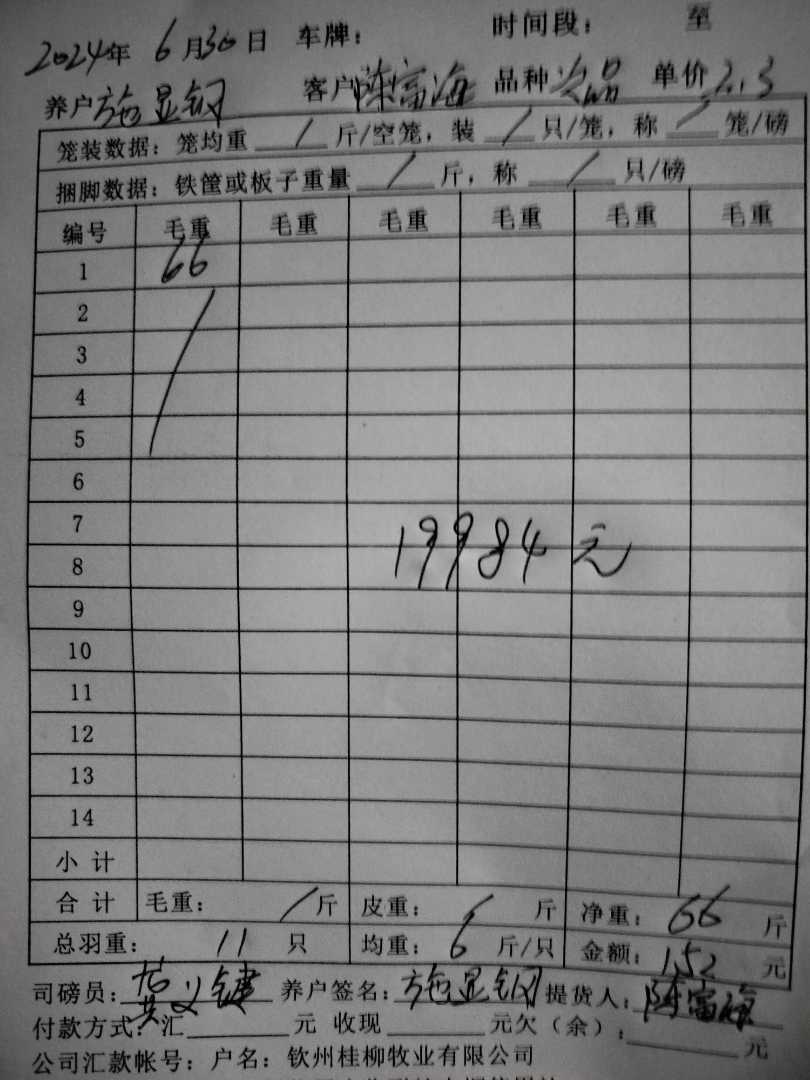 2024年 6月30日 车牌： 时间段： 至
养户 施显钢 客户 陈富海 品种 次品 单价 2.3
笼装数据：笼均重 / 斤/空笼，装 / 只/笼，称 / 笼/磅
捆脚数据：铁筐或板子重量 / 斤，称 / 只/磅
编号 毛重 毛重 毛重 毛重 毛重 毛重
1 66
2
3
4
5
6
7
19984元
8
9
10
11
12
13
14
小计
合计 毛重： / 斤 皮重： 斤 净重：66 斤
总羽重：11 只 均重：6 斤/只 金额：152 元
司磅员：黄义键 养户签名：施显钢 提货人：陈富海
付款方式：汇 元 收现 元欠（余）： 元
公司汇款帐号：户名：钦州桂柳牧业有限公司